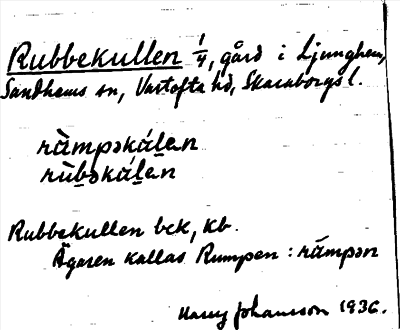 Rubbekullen 1/4, gård i Ljunghem,
Sandhems sn, Vartofta hd, Skaraborgs l.
ràmpəkálen
rùbəkálen
Rubbekullen bck, kb.
Ägaren kallas Rumpen: ràmpən
Harry Johansson 1936.